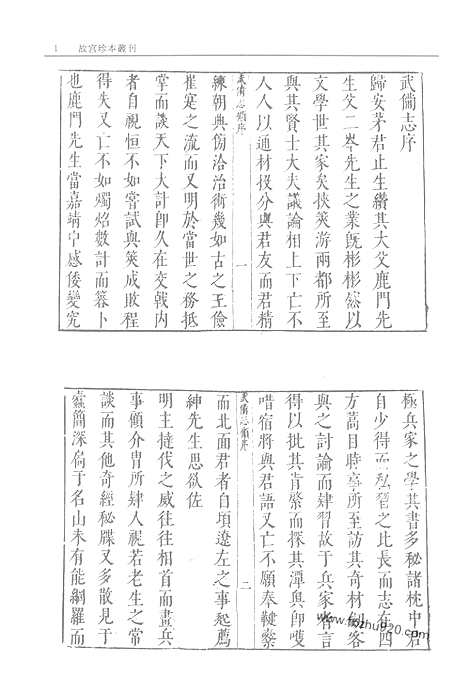 1 故宮珍本叢刊
武備志序
歸安茅君止生纘其大父鹿門先
生父二岑先生之業既彬彬然以
文學世其家矣挾筴游兩都所至
與其賢士大夫議論相上下亡不
人人以通材投分與君友而君精
武備志顧序 一
練朝典傍洽治術幾如古之王儉
崔寔之流而又明於當世之務抵
掌而談天下大計即久在交戟內
者自視恒不如嘗試與筴成敗程
得失又亡不如燭炤數計而蓍卜
也鹿門先生當嘉靖中感倭變究
極兵家之學其書多秘諸枕中君
自少得而私習之比長而志在四
方蒿目時事所至訪其奇材劍客
與之討論而肄習故于兵家者言
得以批其肯綮而探其潭奧即嚄
唶宿將與君語又亡不願奉鞬櫜
武備志顧序 二
而北面君者自頃遼左之事起薦
紳先生思欲佐
明主撻伐之威往往相首而畫兵
事顧介胄所肄人視若老生之常
談而其他奇經秘牒又多散見于
蠹簡深扃于名山未有能網羅而